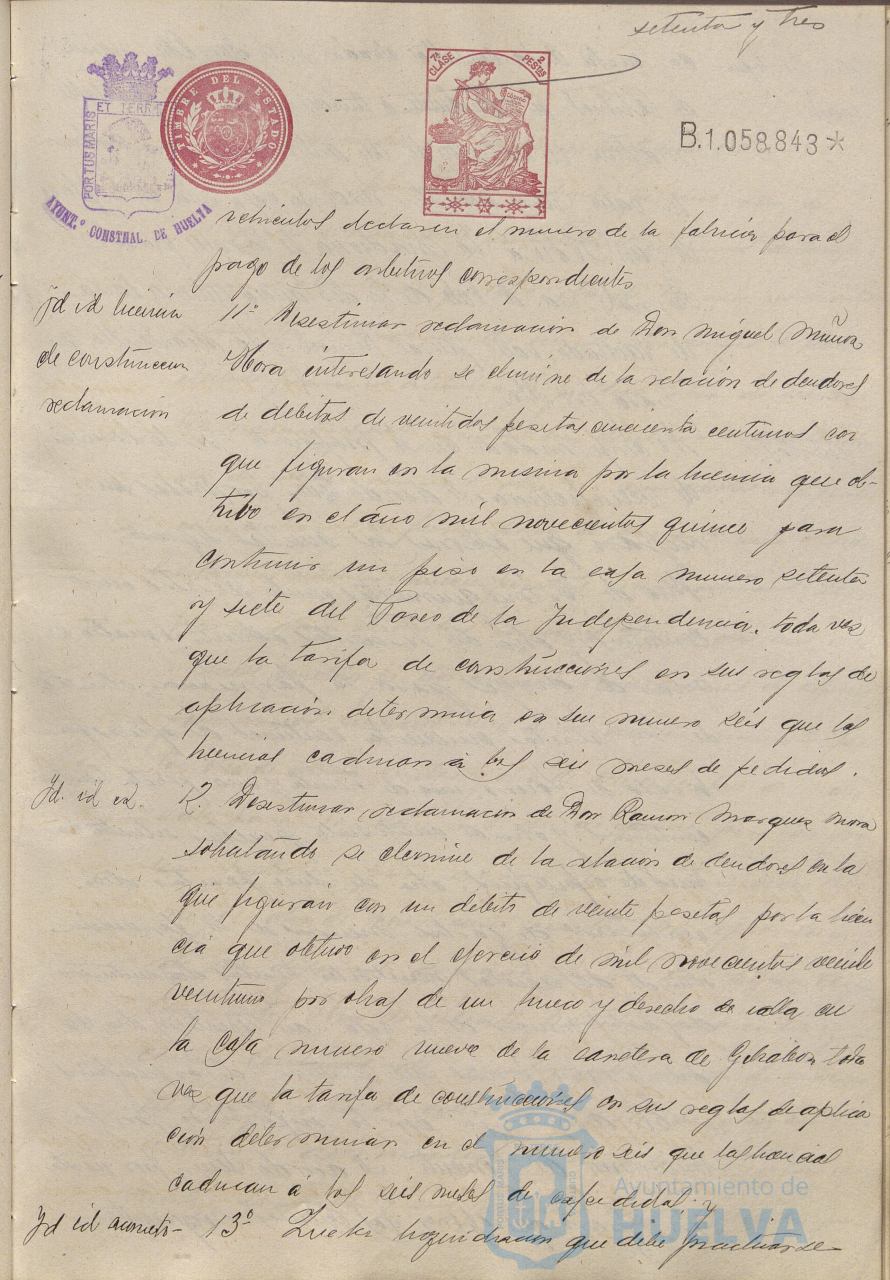 setenta y tres
PORTUS MARIS
ET TERR
AYUNT.º CONSTNAL. DE HUELVA
TIMBRE DEL ESTADO
7ª CLASE 2 PESTAS
B.1.058.843*
vehiculos declaren el numero de la fabrica para el
pago de los arbitrios correspondientes
Id id licencia
de construccion
reclamación
11º Desestimar reclamación de Don Miguel Muñoz
Mora interesando se elimine de la relación de deudores
de debitos de veintidos pesetas cincuenta centimos con
que figuran en la misma por la licencia que ob-
tubo en el año mil novecientos quince para
construir un piso en la casa numero setenta
y siete del Paseo de la Independencia, toda vez
que la tarifa de construcciones en sus reglas de
aplicación determina en su numero seis que las
licencias caducan a los seis meses de pedidas.
Id. id id.
12. Desestimar reclamación de Don Ramon Marquez Mora
solicitando se elimine de la relación de deudores en la
que figuran con un debito de veinte pesetas por la licen
cia que obtuvo en el ejercicio de mil novecientos veinte
veintiuno por obras de un hueco y derecho de valla en
la casa numero nueve de la carretera de Gibraleon toda
vez que la tarifa de construcciones en sus reglas de aplica
ción determinan en el numero seis que las licencias
caducan á los seis meses de expedidas; y
Id id
13º liquidación que debe practicarse
Ayuntamiento de
HUELVA